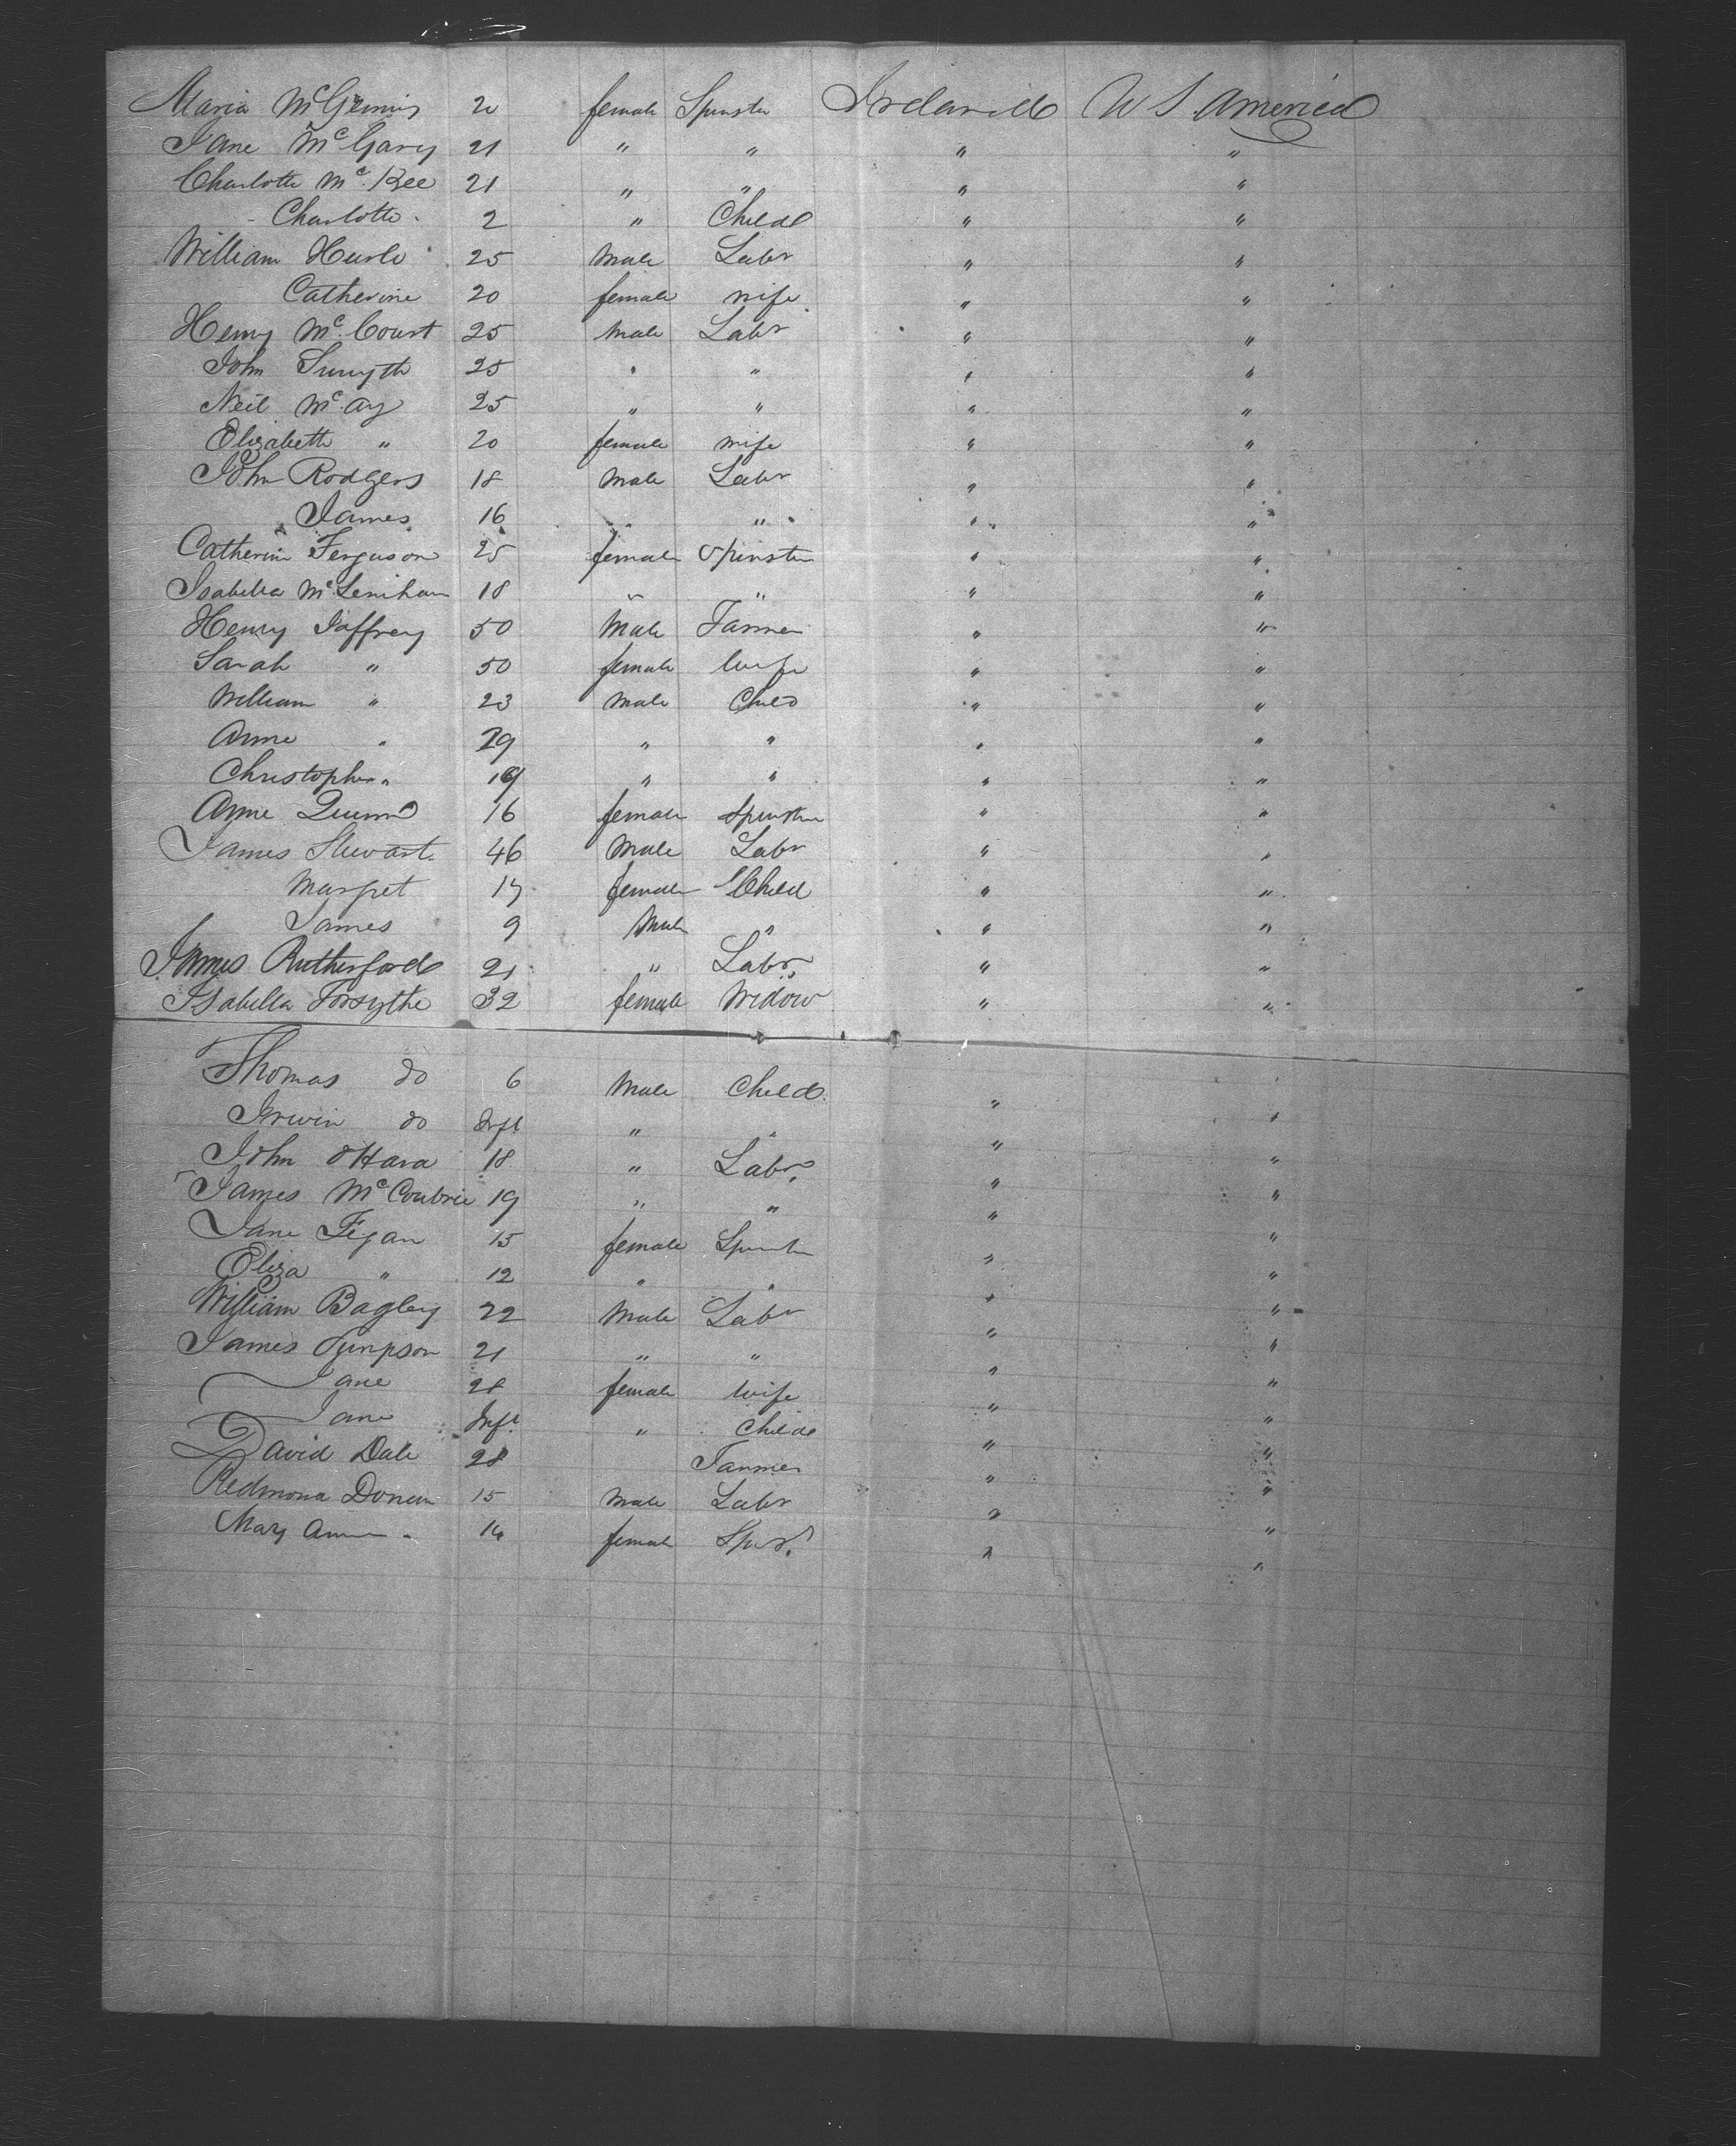 Maria McGinnis 20 female Spinster Ireland U S. America
Jane McGary 21 " " " "
Charlotte Mc.Kee 21 " " " "
Charlotte 2 " Child " "
William 25 Male Labr " "
Catherine 20 female wife " "
Henry Mc.Court 25 Male Labr " "
John Smyth 25 " " " "
Neil Mc.ay 25 " " " "
Elizabeth " 20 female wife " "
John Rodgers 18 Male Labr " "
James 16 " " " "
Catherin Ferguson 25 female Spinster " "
Isabella McLenihan 18 " " " "
Henry Jaffrey 50 Male Farmer " "
Sarah " 50 female Wife " "
William " 23 Male Child " "
Anne " 29 " " " "
Christopher " 19 " " " "
Anne Quinn 16 female Spinster " "
James Stewart 46 Male Labr " "
Margret 17 female Child " "
James 9 Male " " "
James Rutherford 21 " Labr " "
Isabella Forsythe 32 female Widow " "
Thomas do 6 Male Child " "
Irwin do Inft " " " "
John OHara 18 " Labr " "
James McCoubrie 19 " " " "
Jane Fegan 15 female Spinster " "
Eliza " 12 " " " "
William Bagley 22 Male Labr " "
James Simpson 21 " " " "
Jane 28 female Wife " "
Jane Inft. " Child " "
David Dale 28 Farmer " "
Redmond 15 Male Labr " "
Mary Ann " 14 female Spnr. " "